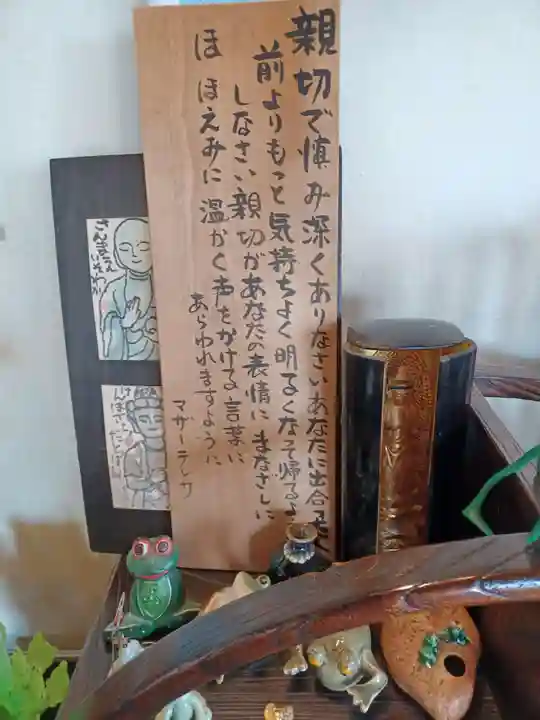 親切で慎み深くありなさいあなたに出合った人が
前よりもっと気持ちよく明るくなって帰るよ
しなさい親切があなたの表情にまなざしに
ほほえみに温かく声をかける言葉に
あらわれますように
マザーテレサ